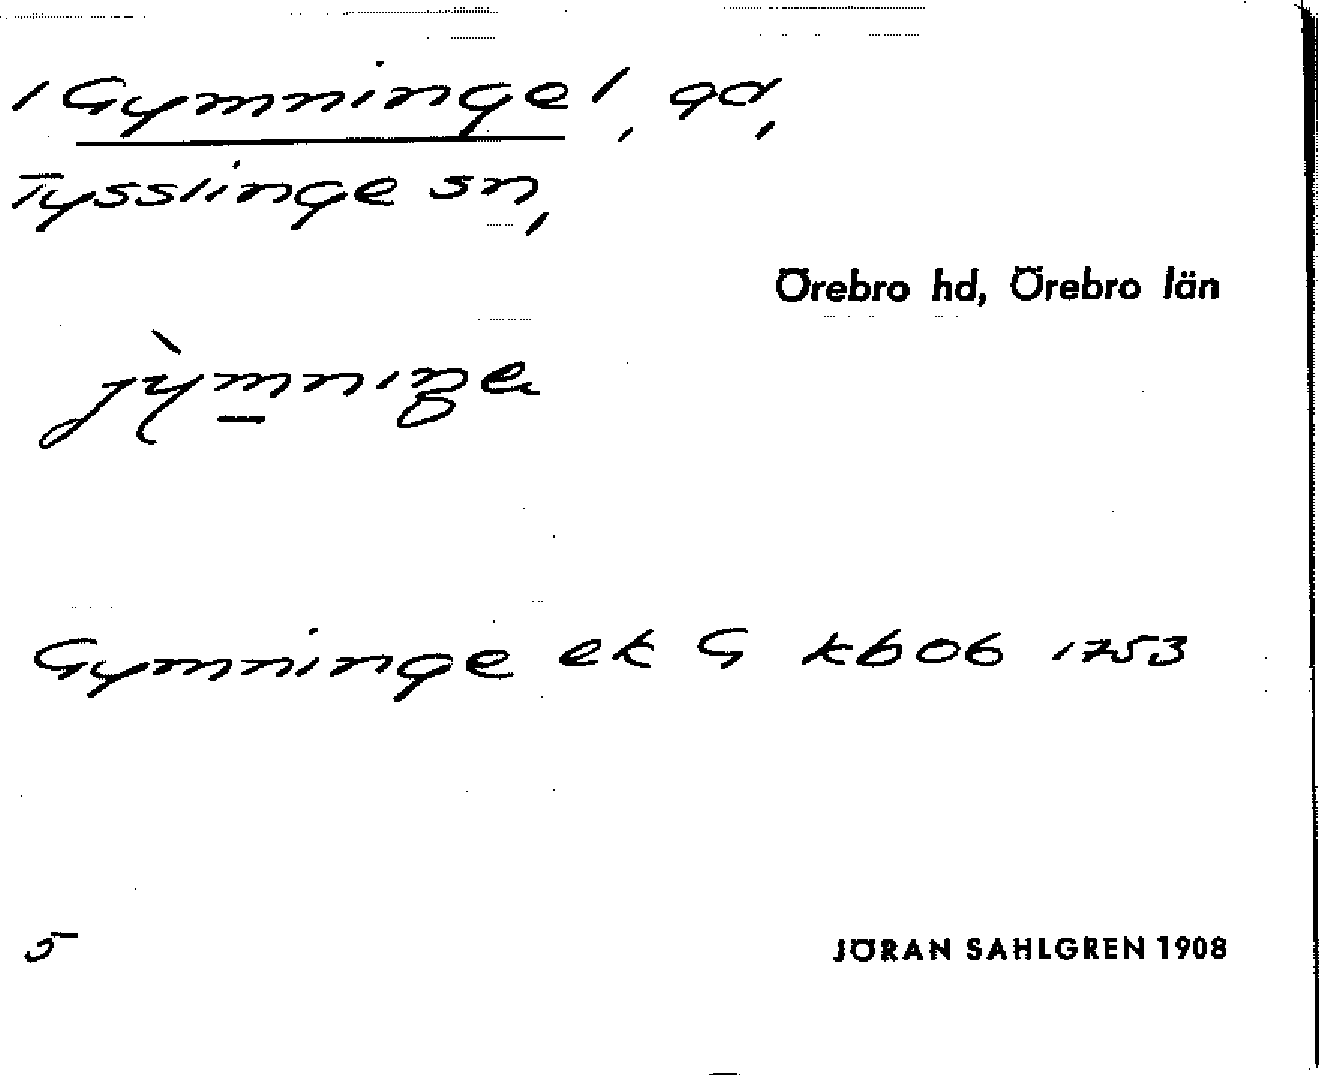 /Gymninge/, gd,
Tysslinge sn,
Örebro hd, Örebro län
jỳmniŋe
Gymninge ek G kb06 1753
5
JÖRAN SAHLGREN 1908